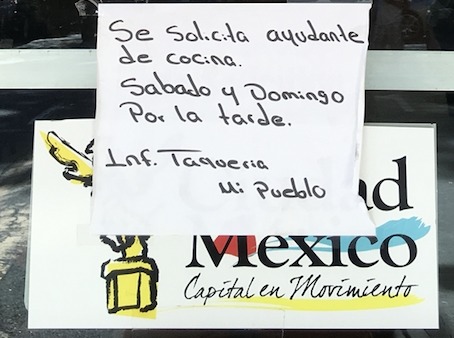 Se Solicita ayudante
de cocina.
Sabado y Domingo
Por la tarde.
Inf. Taqueria
Mi Pueblo
México
Capital en Movimiento